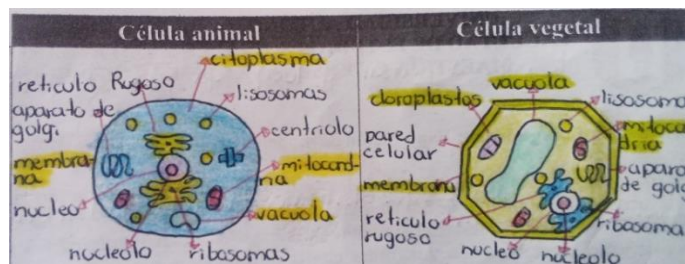 Célula animal
citoplasma
reticulo Rugoso
lisosomas
aparato de
golgi
centriolo
membra-
na
mitocond
ria
nucleo
vacuola
nucleolo
ribosomas
Célula vegetal
vacuola
cloroplastos
lisosoma
pared
celular
mitocon
dria
membrana
apara
de golg
reticulo
rugoso
ribosoma
nucleo
nucleolo